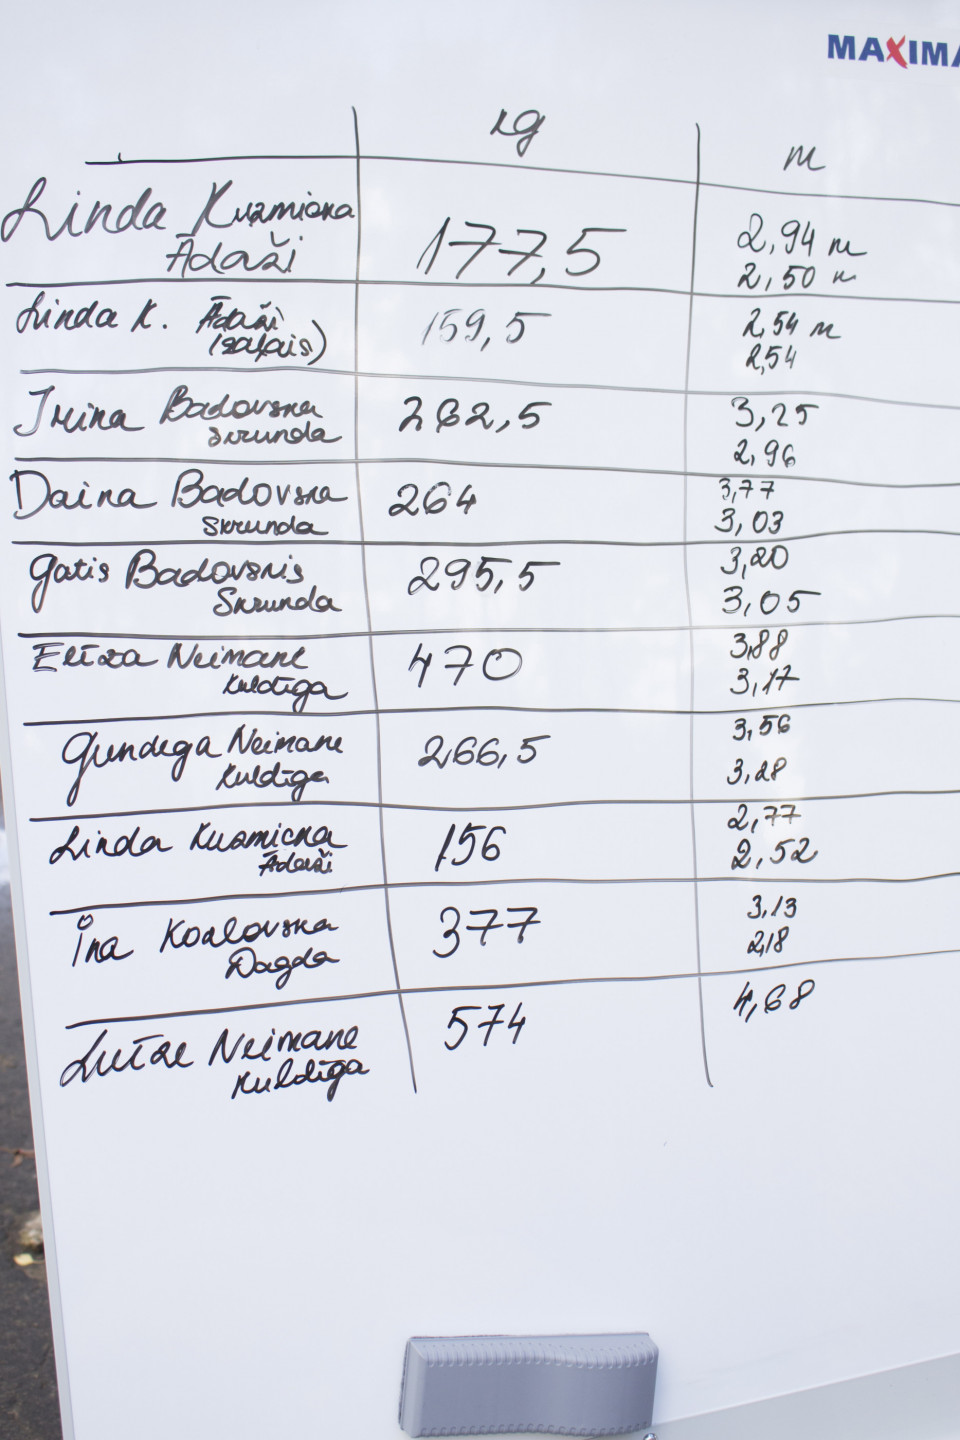 MAXIMA
kg m
Linda Kuzmicka 177,5 2,94 m
Ādaži 2,50 m
Linda K. Ādaži 159,5 2,54 m
(zaļais) 2,54
Irina Badovska 262,5 3,25
Skrunda 2,96
Daina Badovska 264 3,77
Skrunda 3,03
Gatis Badovskis 295,5 3,20
Skrunda 3,05
Elīza Neimane 470 3,88
Kuldīga 3,17
Gundega Neimane 266,5 3,56
Kuldīga 3,28
Linda Kuzmicka 156 2,77
Ādaži 2,52
Ina Kozlovska 377 3,13
Dagda 2,18
Luīze Neimane 574 4,68
Kuldīga